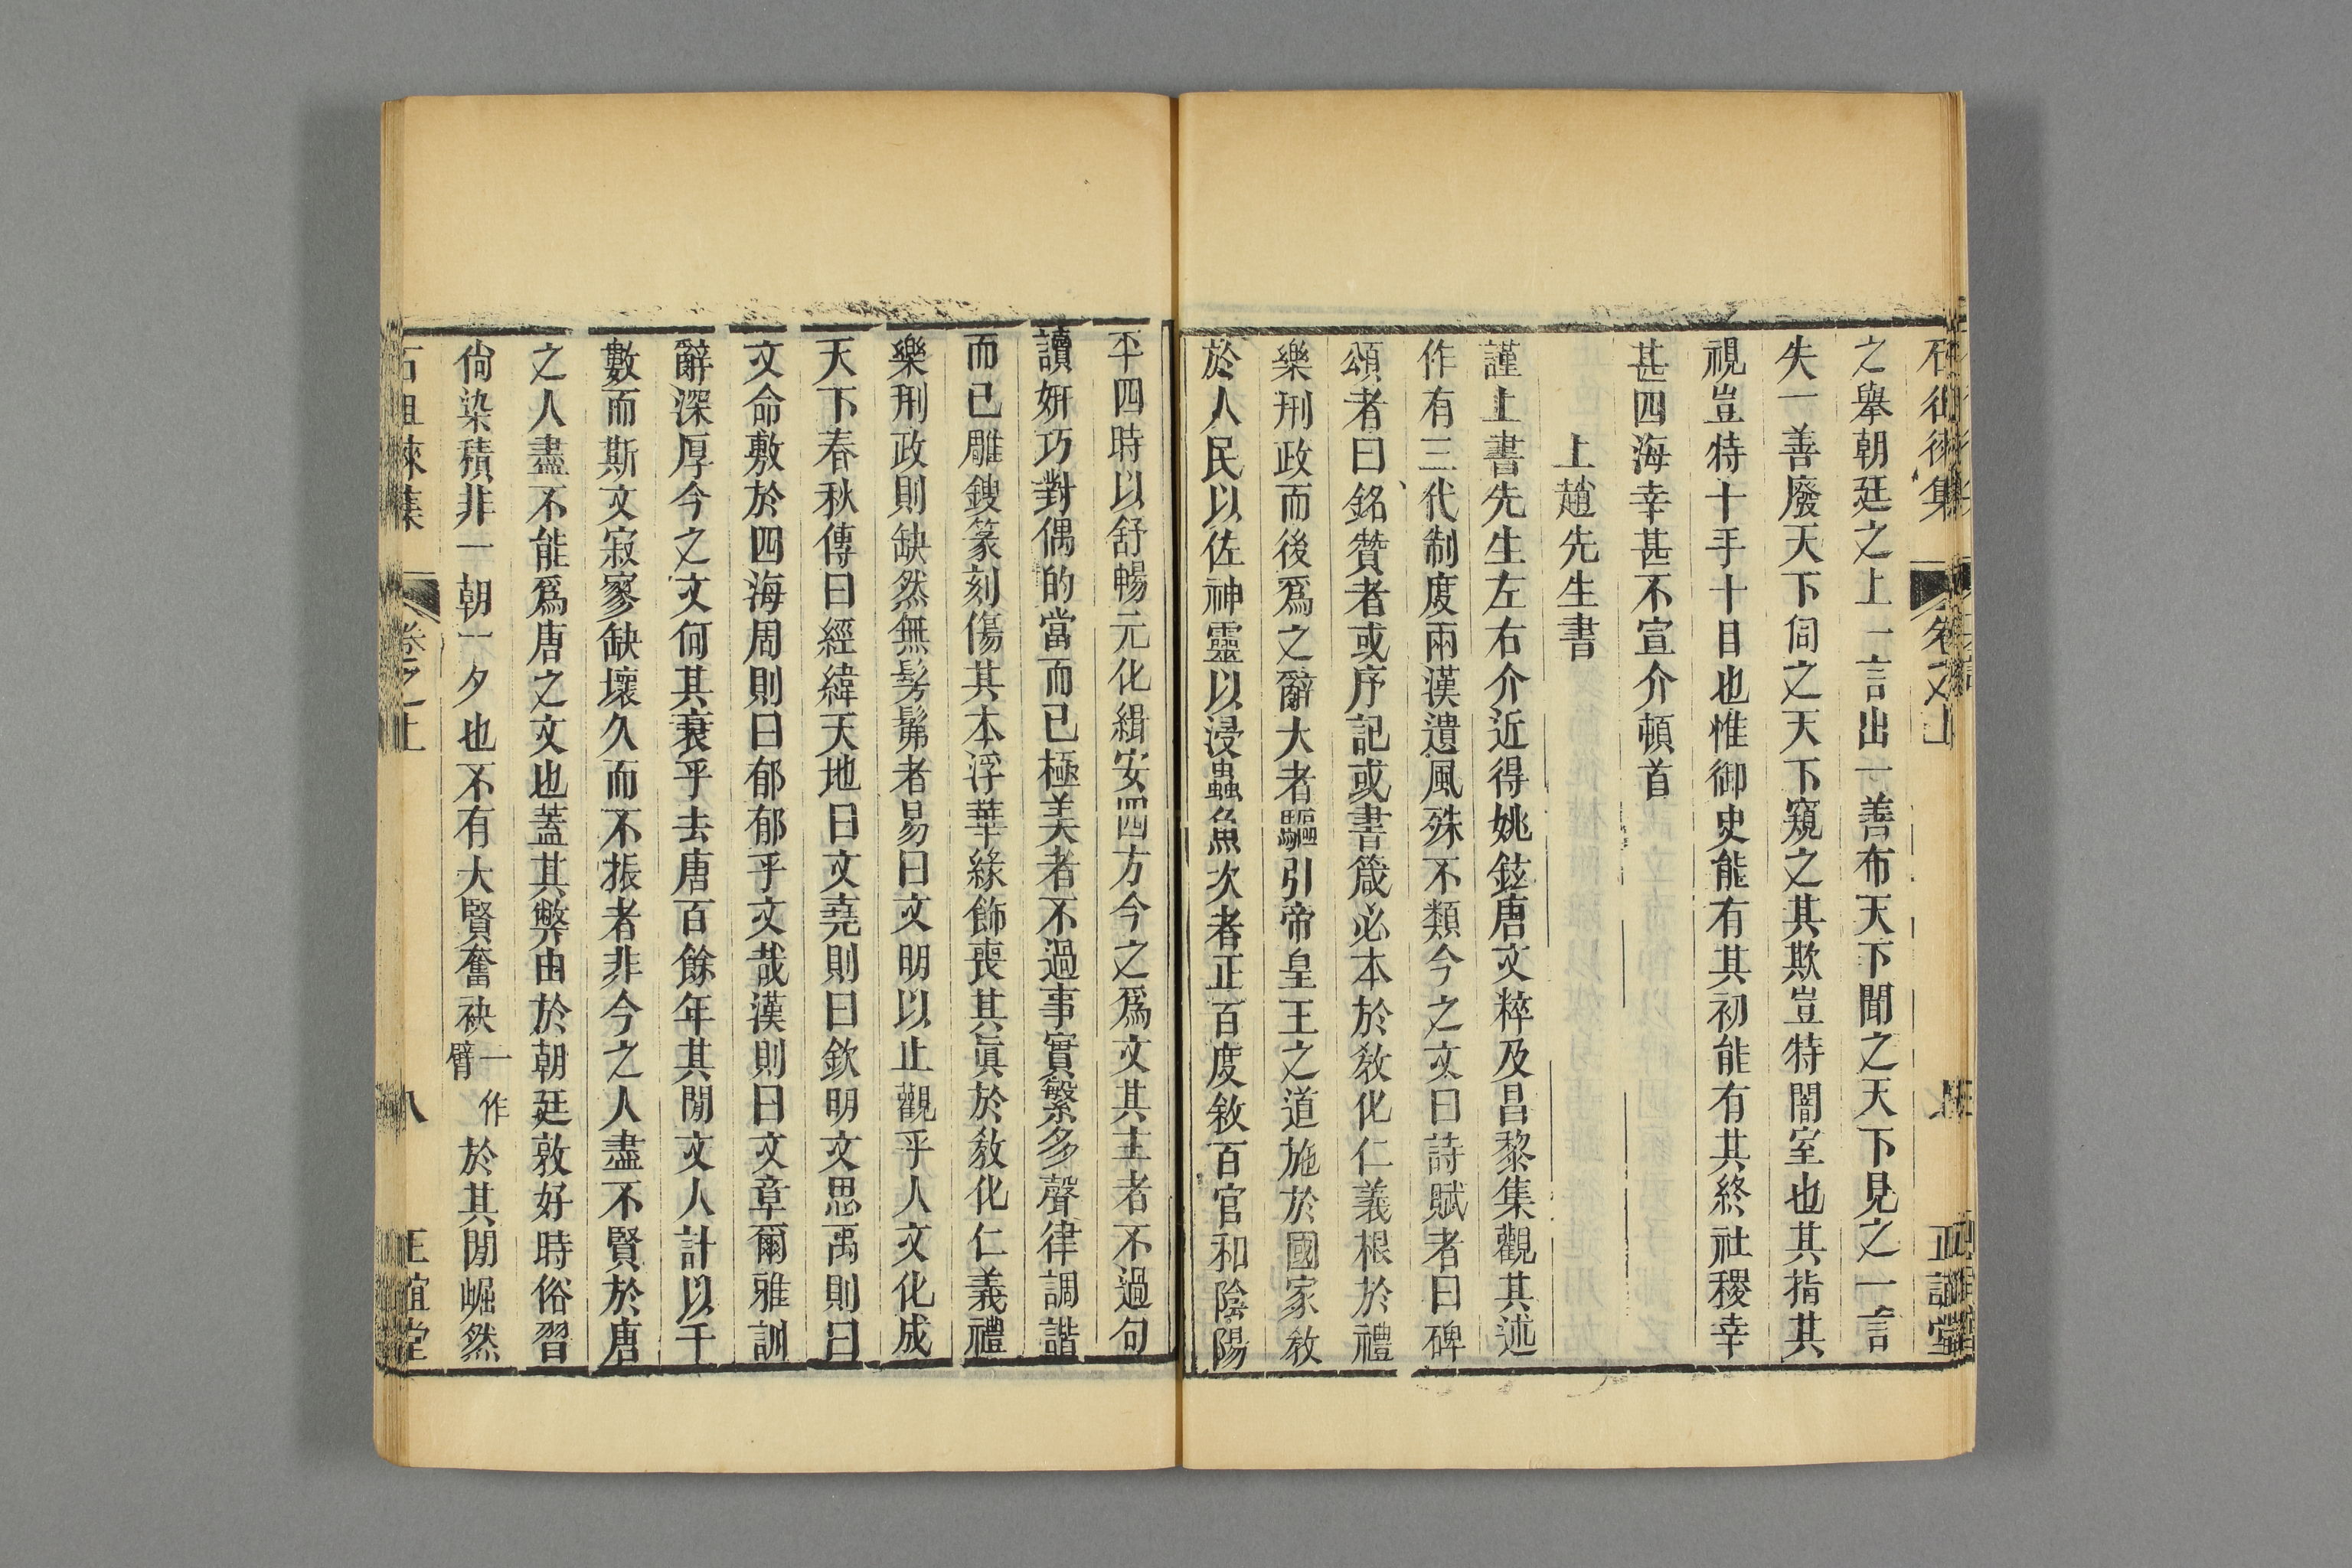 之舉朝廷之上一言出一善布天下聞之天下見之一言
失一善廢天下伺之天下窺之其欺豈特闇室也其指其
視豈特十手十目也惟御史能有其初能有其終社稷幸
甚四海幸甚不宣介頓首
上趙先生書
謹上書先生左右介近得姚鉉唐文粹及昌黎集觀其述
作有三代制度兩漢遺風殊不類今之文曰詩賦者曰碑
頌者曰銘贊者或序記或書箴必本於敎化仁義根於禮
樂刑政而後爲之辭大者驅引帝皇王之道施於國家敎
於人民以佐神靈以浸蟲魚次者正百度敘百官和陰陽
平四時以舒暢元化緝安四方今之爲文其主者不過句
讀妍巧對偶的當而已極美者不過事實繁多聲律調諧
而已雕鎪篆刻傷其本浮華緣飾喪其眞於敎化仁義禮
樂刑政則缺然無髣髴者易曰文明以止觀乎人文化成
天下春秋傳曰經緯天地曰文堯則曰欽明文思禹則曰
文命敷於四海周則曰郁郁乎文哉漢則曰文章爾雅訓
辭深厚今之文何其衰乎去唐百餘年其閒文人計以千
數而斯文寂寥缺壞久而不振者非今之人盡不賢於唐
之人盡不能爲唐之文也蓋其弊由於朝廷敦好時俗習
尙染積非一朝一夕也不有大賢奮袂一作臂於其閒崛然
石徂徠集 卷之上 八 正誼堂